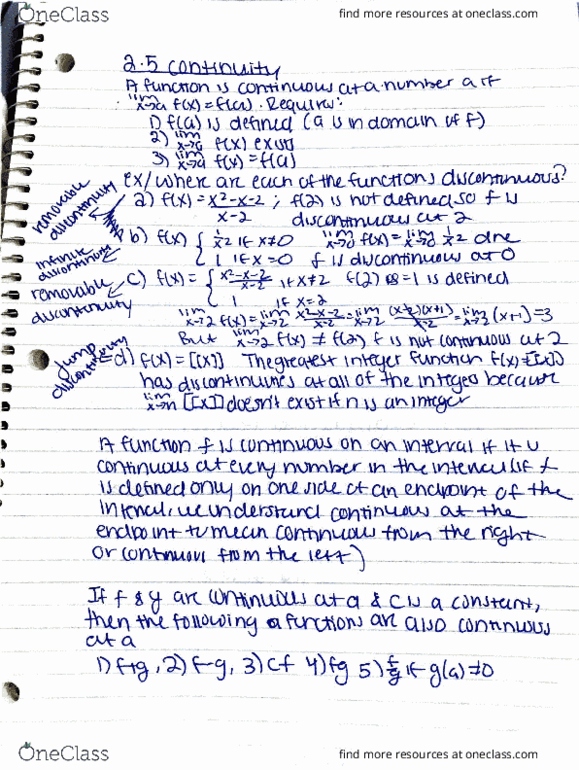 OneClass
find more resources at oneclass.com
2.5 continuity
A function is continuous at a number a if
lim x→a f(x)=f(a). Requires:
1) f(a) is defined (a is in domain of f)
2) lim x→a f(x) exists
3) lim x→a f(x)=f(a)
ex/ where are each of the functions discontinuous?
removable discontinuity
a) f(x)=x²-x-2/x-2; f(2) is not defined, so f is
discontinuous at 2
infinite discontinuity
b) f(x) { 1/x² if x≠0 lim x→0 f(x)=lim x→0 1/x² dne
1 if x=0 f is discontinuous at 0
removable discontinuity
c) f(x)= { x²-x-2/x-2 if x≠2 f(2)=1 is defined
1 if x=2
lim x→2 f(x)=lim x→2 x²-x-2/x-2=lim x→2 (x-2)(x+1)/x-2=lim x→2 (x+1)=3
But lim x→2 f(x) ≠ f(2) f is not continuous at 2
jump discontinuity
d) f(x)=[[x]] The greatest integer function f(x)=[[x]]
has discontinuities at all of the integers because
lim x→n [[x]] doesn't exist if n is an integer
A function f is continuous on an interval if it is
continuous at every number in the interval (if f
is defined only on one side of an endpoint of the
interval, we understand continuous at the
endpoint to mean continuous from the right
or continuous from the left)
If f & g are continuous at a & c is a constant,
then the following functions are also continuous
at a
1) f+g, 2) f-g, 3) cf 4) fg 5) f/g if g(a)≠0
OneClass
find more resources at oneclass.com